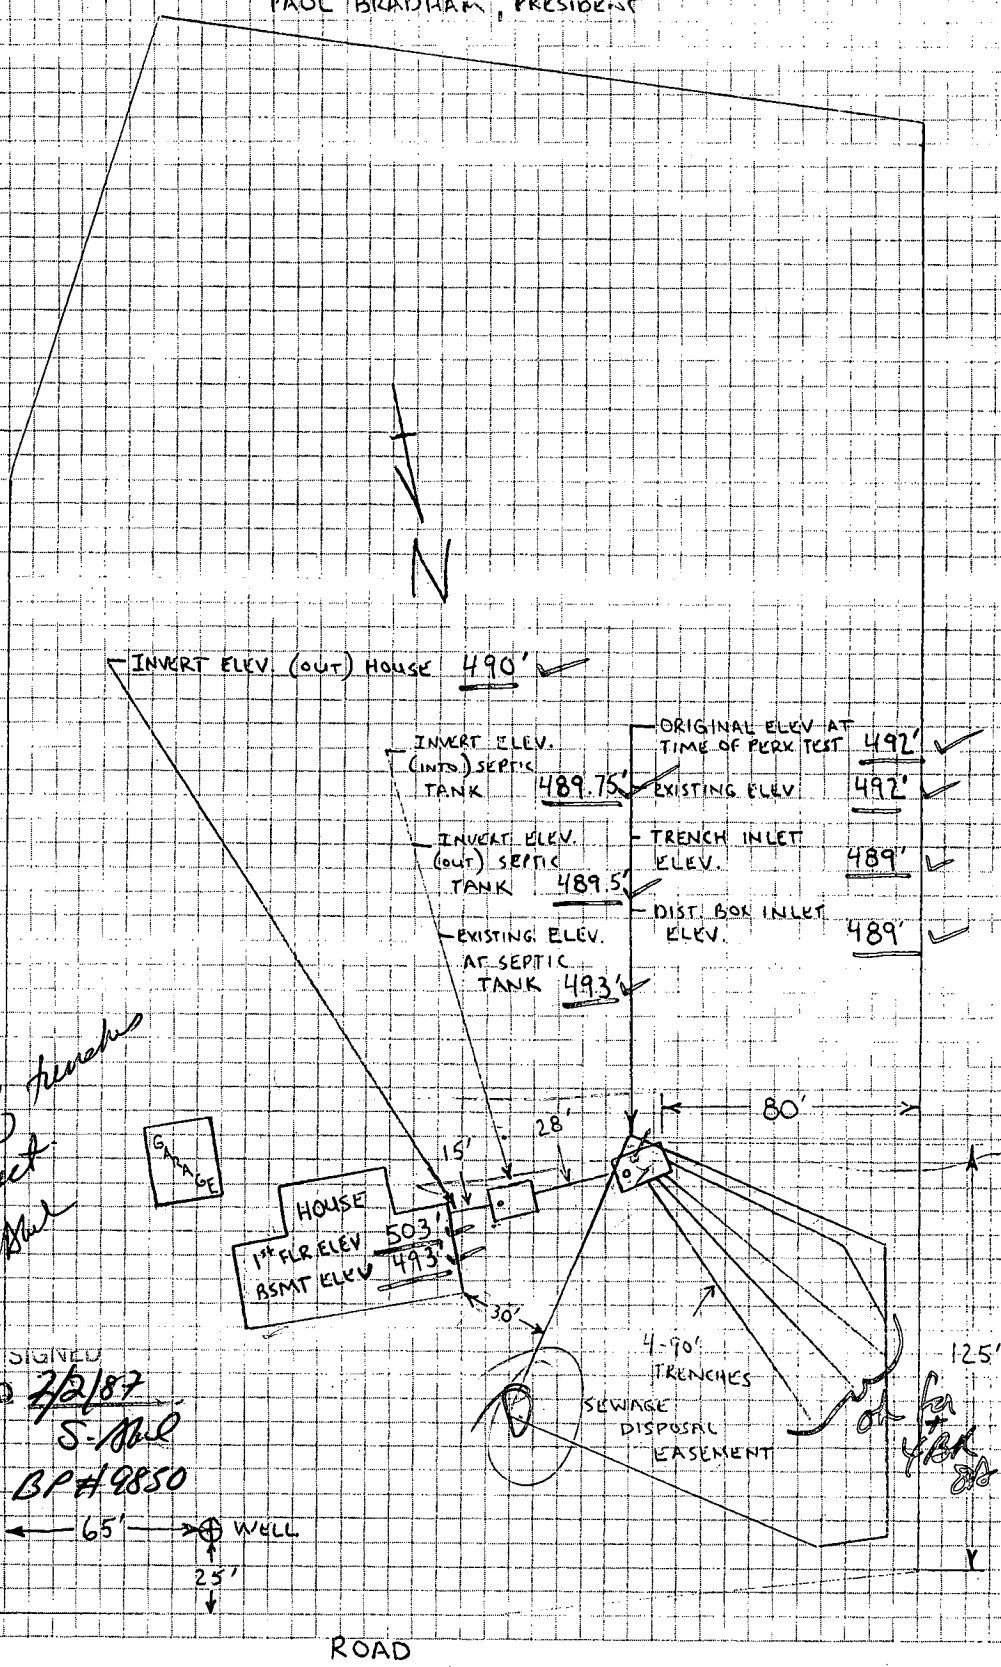 PAUL BRADHAM, PRESIDENT
N
INVERT ELEV. (OUT) HOUSE 490'
INVERT ELEV.
(INTO) SEPTIC
TANK 489.75'
INVERT ELEV.
(OUT) SEPTIC
TANK 489.5'
EXISTING ELEV.
AT SEPTIC
TANK 493'
ORIGINAL ELEV AT
TIME OF PERK TEST 492'
EXISTING ELEV 492'
TRENCH INLET
ELEV. 489'
DIST. BOX INLET
ELEV. 489'
trenches
80'
28'
15'
GARAGE
HOUSE
1st FLR. ELEV 503'
BSMT ELEV 493'
30'
4-90'
TRENCHES
SEWAGE
DISPOSAL
EASEMENT
125'
ok for
4 BR
SIGNED
2/2/87
BP#9850
65'
WELL
25'
ROAD